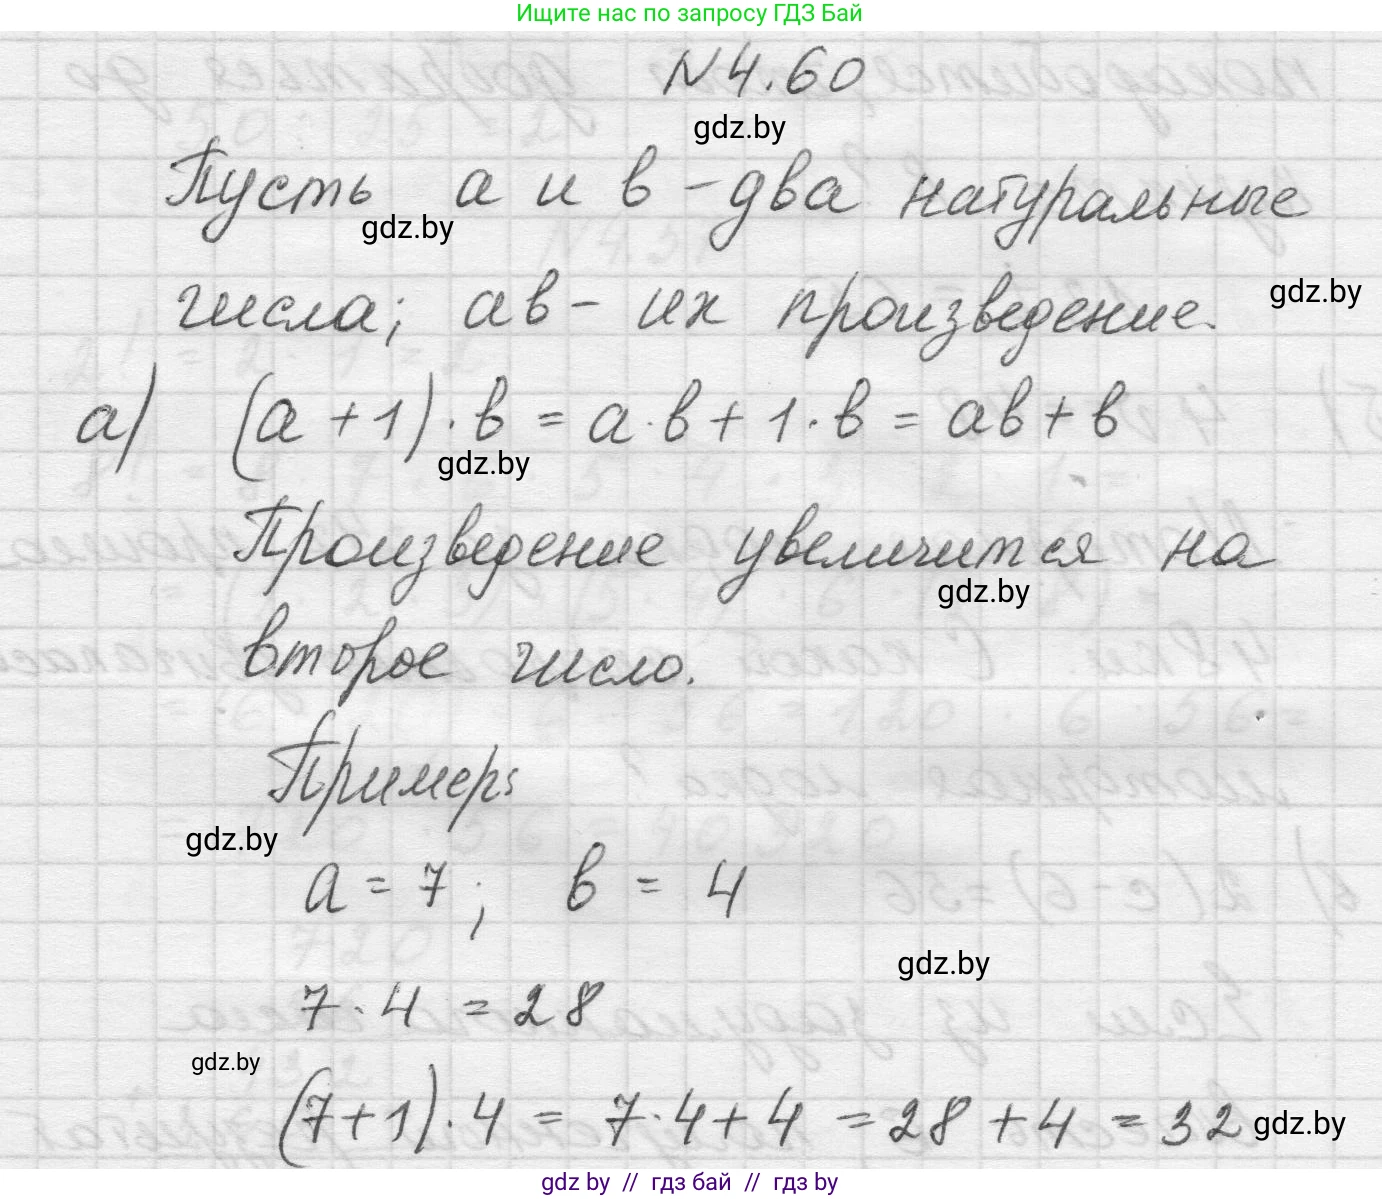 Ищите нас по запросу ГДЗ Бай
N4.60
gdz.by
Пусть а и в - два натуральные
gdz.by
числа; ав - их произведение.
gdz.by
а) (а + 1) · в = а · в + 1 · в = ав + в
gdz.by
Произведение увеличится на
gdz.by
второе число.
Пример:
gdz.by
а = 7; в = 4
gdz.by
7 · 4 = 28
gdz.by
(7+1) · 4 = 7 · 4 + 4 = 28 + 4 = 32
gdz.by
gdz by // гдз бай // гдз by